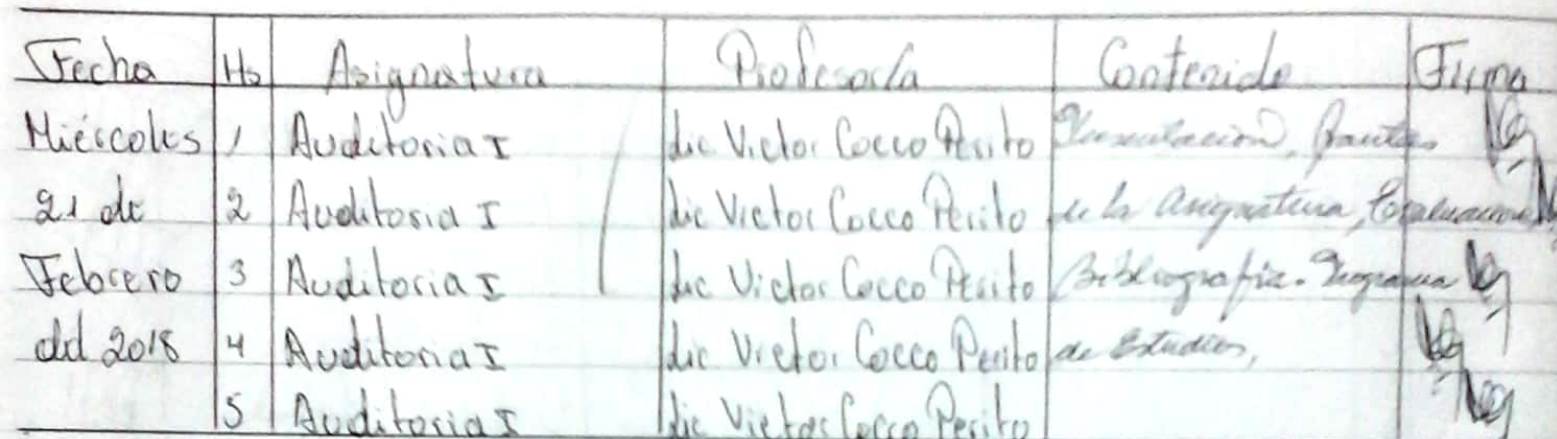 Fecha Hs Asignatura Profesor/a Contenido Firma
Miércoles 1 Auditoria I Lic Victor Cocco Perito Presentación, Pautas
21 de 2 Auditoria I Lic Victor Cocco Perito de la asignatura, Evaluaciones
Febrero 3 Auditoria I Lic Victor Cocco Perito Bibliografia. Programa
del 2018 4 Auditoria I Lic Victor Cocco Perito de Estudios,
5 Auditoria I Lic Victor Cocco Perito